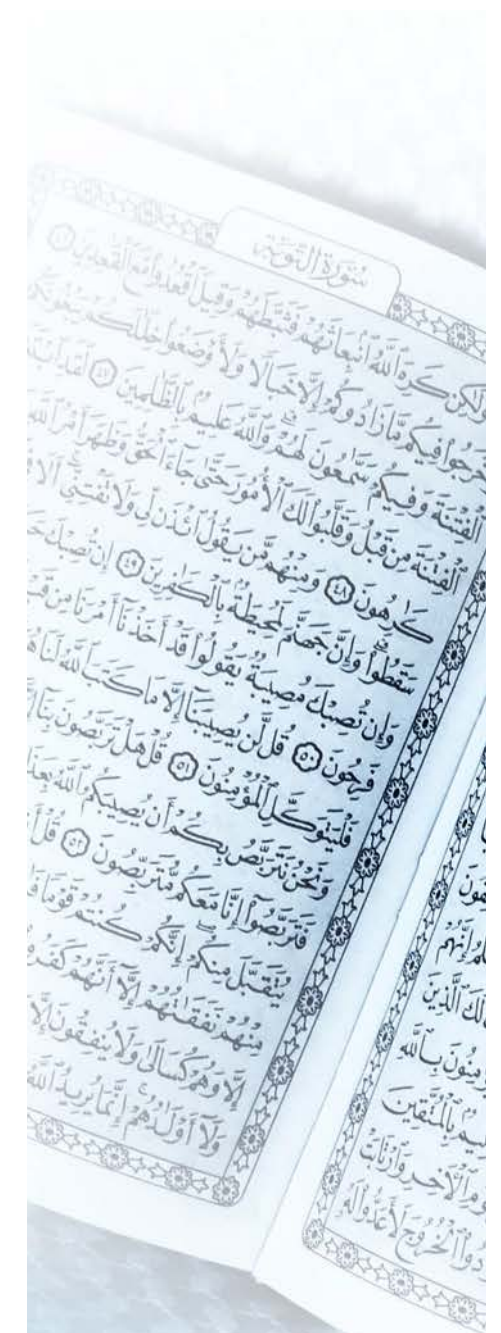 دُوا۟ ٱلْخُرُوجَ لَأَعَدُّوا۟ لَهُۥ
وَلَٰكِن كَرِهَ ٱللَّهُ ٱنۢبِعَاثَهُمْ فَثَبَّطَهُمْ وَقِيلَ ٱقْعُدُوا۟ مَعَ ٱلْقَٰعِدِينَ ٤٦
خَرَجُوا۟ فِيكُم مَّا زَادُوكُمْ إِلَّا خَبَالًا وَلَأَوْضَعُوا۟ خِلَٰلَكُمْ يَبْغُونَكُمُ
ٱلْفِتْنَةَ وَفِيكُمْ سَمَّٰعُونَ لَهُمْ وَٱللَّهُ عَلِيمٌۢ بِٱلظَّٰلِمِينَ ٤٧ لَقَدِ
ٱلْفِتْنَةَ مِن قَبْلُ وَقَلَّبُوا۟ لَكَ ٱلْأُمُورَ حَتَّىٰ جَآءَ ٱلْحَقُّ وَظَهَرَ أَمْرُ ٱللَّهِ
كَٰرِهُونَ ٤٨ وَمِنْهُم مَّن يَقُولُ ٱئْذَن لِّى وَلَا تَفْتِنِّىٓ أَلَا
سَقَطُوا۟ وَإِنَّ جَهَنَّمَ لَمُحِيطَةٌۢ بِٱلْكَٰفِرِينَ ٤٩ إِن تُصِبْكَ
وَإِن تُصِبْكَ مُصِيبَةٌ يَقُولُوا۟ قَدْ أَخَذْنَآ أَمْرَنَا مِن
فَرِحُونَ ٥٠ قُل لَّن يُصِيبَنَآ إِلَّا مَا كَتَبَ ٱللَّهُ لَنَا
فَلْيَتَوَكَّلِ ٱلْمُؤْمِنُونَ ٥١ قُلْ هَلْ تَرَبَّصُونَ بِنَآ
وَنَحْنُ نَتَرَبَّصُ بِكُمْ أَن يُصِيبَكُمُ ٱللَّهُ
فَتَرَبَّصُوٓا۟ إِنَّا مَعَكُم مُّتَرَبِّصُونَ ٥٢ قُلْ
يُتَقَبَّلَ مِنكُمْ إِنَّكُمْ كُنتُمْ قَوْمًا
مِنْهُمْ نَفَقَٰتُهُمْ إِلَّآ أَنَّهُمْ كَفَرُوا۟
إِلَّا وَهُمْ كُسَالَىٰ وَلَا يُنفِقُونَ إِلَّا
وَلَآ أَوْلَٰدُهُمْ إِنَّمَا يُرِيدُ ٱللَّهُ
سُورَةُ التَّوْبَةِ
إِنَّهُمْ
لَكَ ٱلَّذِينَ
بِٱللَّهِ
بِٱلْمُتَّقِينَ
ٱلْـَٔاخِرِ وَٱرْتَابَتْ